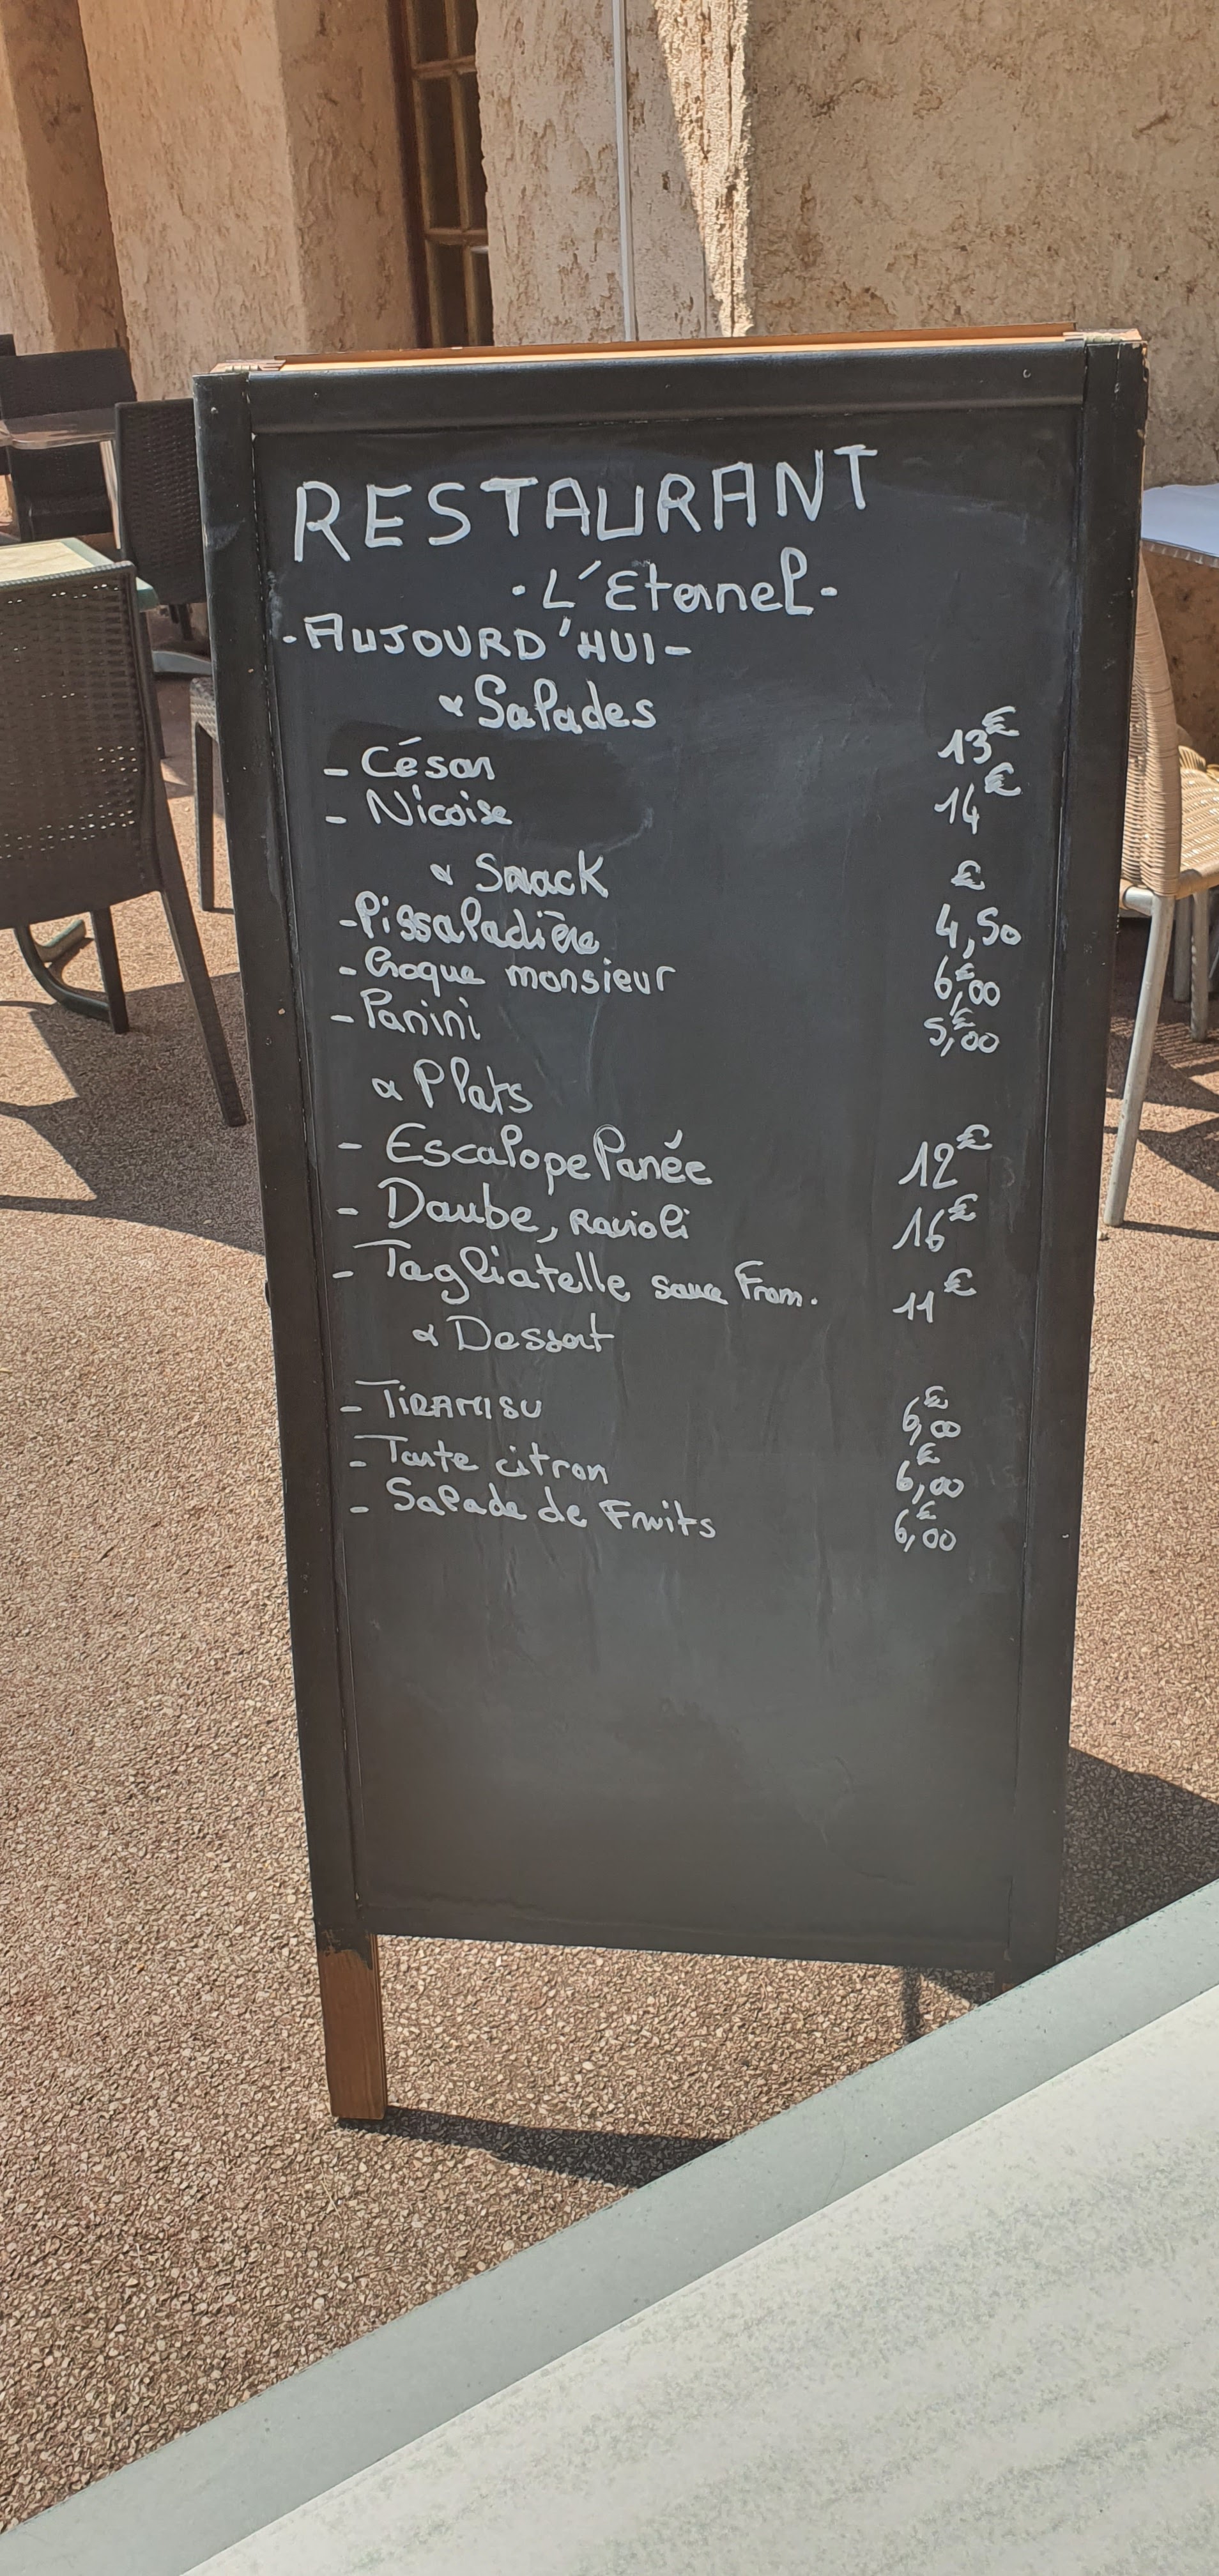 RESTAURANT
- L'Eternel -
- AUJOURD'HUI -
Salades
- César 13€
- Nicoise 14€
Snack €
- Pissaladière 4,50
- Croque monsieur 6,00€
- Panini 5,00€
Plats
- Escalope Panée 12€
- Daube, Ravioli 16€
- Tagliatelle sauce From. 11€
Dessert
- TIRAMISU 6,00€
- Tarte citron 6,00€
- Salade de Fruits 6,00€